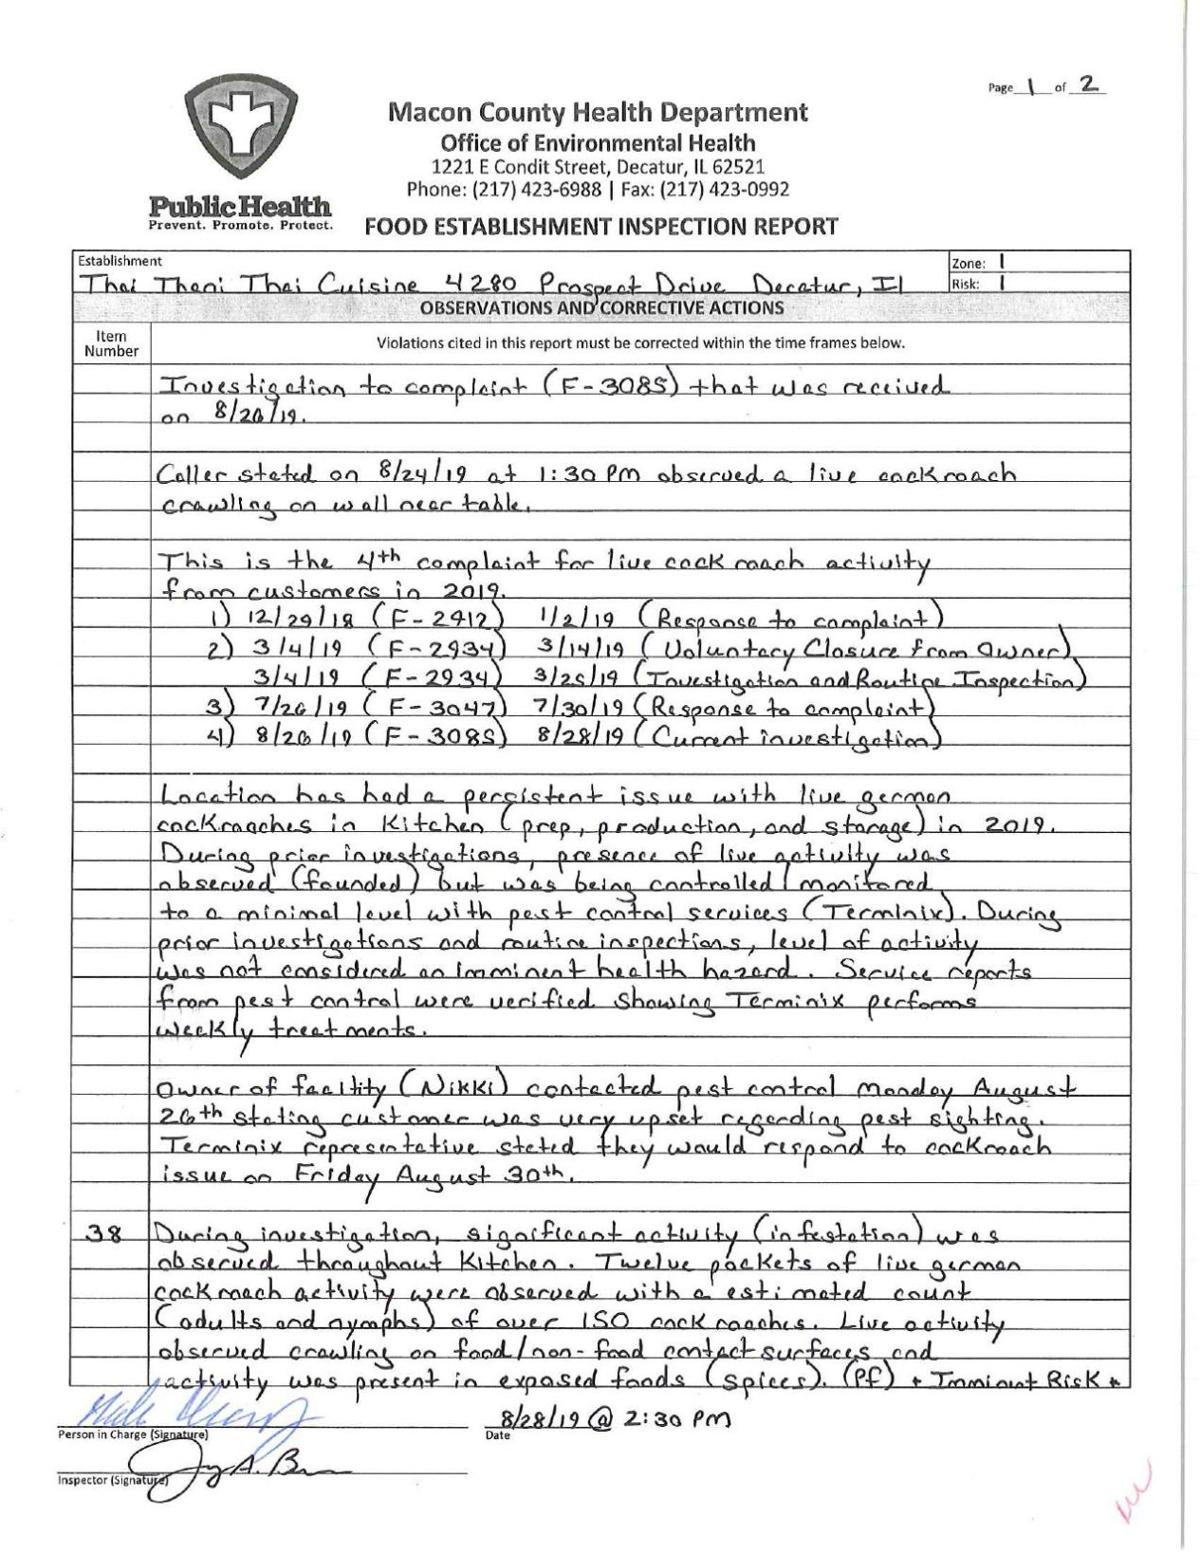 Page 1 of 2
Macon County Health Department
Office of Environmental Health
1221 E Condit Street, Decatur, IL 62521
Phone: (217) 423-6988 | Fax: (217) 423-0992
Public Health
Prevent. Promote. Protect.
FOOD ESTABLISHMENT INSPECTION REPORT
Establishment
Thai Thani Thai Cuisine 4280 Prospect Drive Decatur, Il
Zone: 1
Risk: 1
OBSERVATIONS AND CORRECTIVE ACTIONS
Item Number
Violations cited in this report must be corrected within the time frames below.
Investigation to complaint (F-3085) that was received
on 8/26/19.
Caller stated on 8/24/19 at 1:30 PM observed a live cockroach
crawling on wall near table.
This is the 4th complaint for live cockroach activity
from customers in 2019.
1) 12/29/18 (F-2912) 1/2/19 (Response to complaint)
2) 3/4/19 (F-2934) 3/14/19 (Voluntary Closure from Owner)
3/4/19 (F-2934) 3/25/19 (Investigation and Routine Inspection)
3) 7/26/19 (F-3047) 7/30/19 (Response to complaint)
4) 8/26/19 (F-3085) 8/28/19 (Current investigation)
Location has had a persistent issue with live german
cockroaches in Kitchen (prep, production, and storage) in 2019.
During prior investigations, presence of live activity was
observed (founded) but was being controlled/monitored
to a minimal level with pest control services (Terminix). During
prior investigations and routine inspections, level of activity
was not considered an imminent health hazard. Service reports
from pest control were verified showing Terminix performs
weekly treatments.
Owner of facility (Nikki) contacted pest control Monday August
26th stating customer was very upset regarding pest sighting.
Terminix representative stated they would respond to cockroach
issue on Friday August 30th.
38 During investigation, significant activity (infestation) was
observed throughout Kitchen. Twelve pockets of live german
cockroach activity were observed with a estimated count
(adults and nymphs) of over 150 cockroaches. Live activity
observed crawling on food/non-food contact surfaces and
activity was present in exposed foods (spices). (Pf) * Imminent Risk *
8/28/19 @ 2:30 PM
Person in Charge (Signature)
Date
Inspector (Signature)